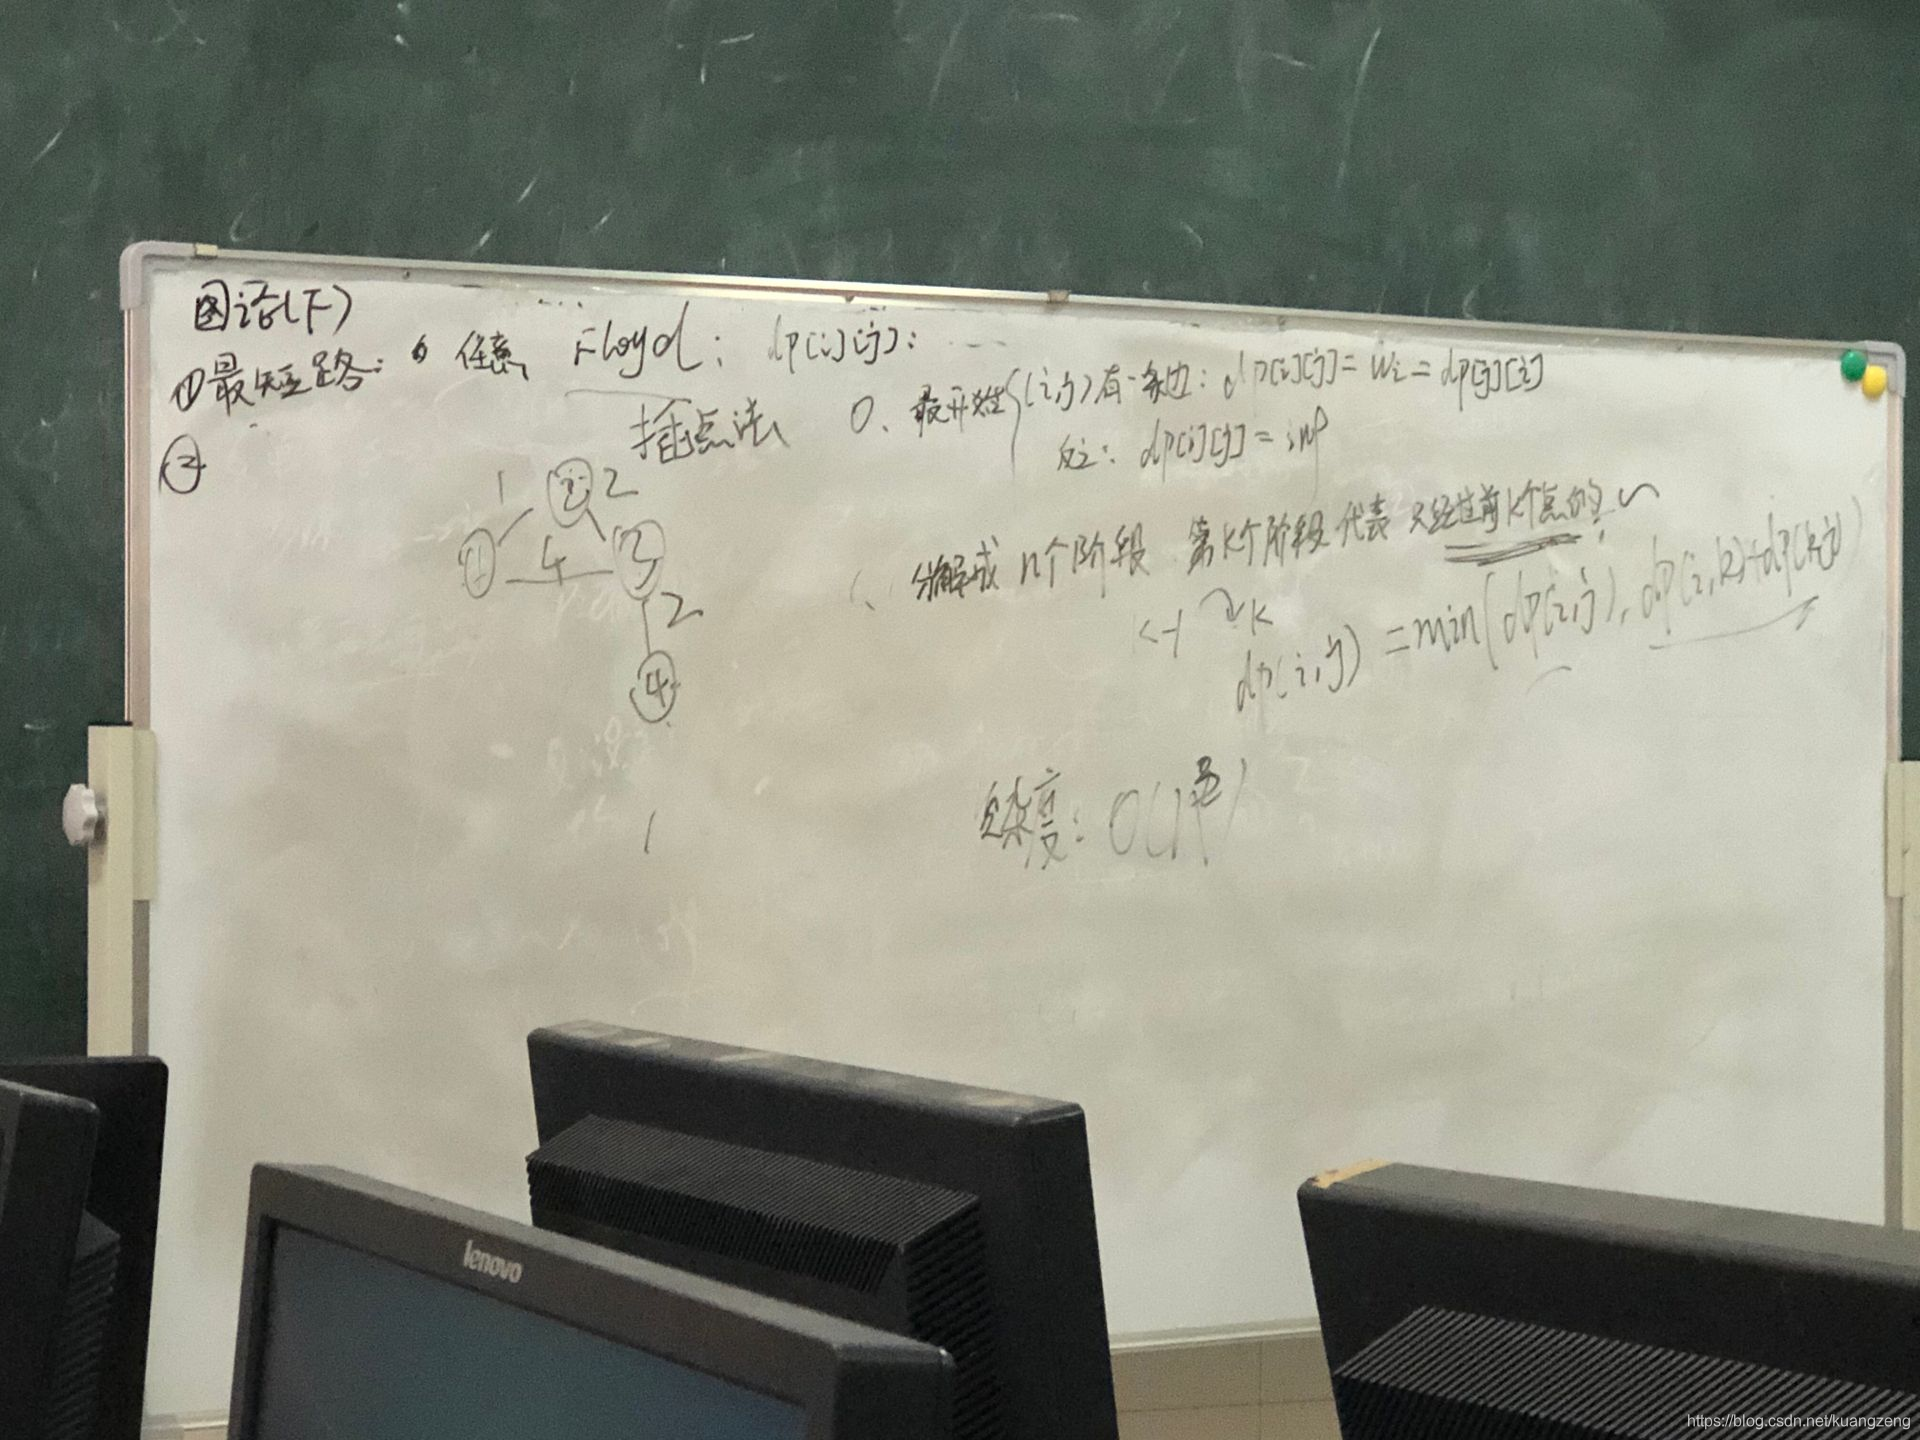 图论(下)
①最短路: 任意 Floyd: dp[i][j]:
②
插点法
0、最开始{(i,j)有一条边: dp[i][j] = wi = dp[j][i]
反之: dp[i][j] = inf
1 ② 2
① 4 ③
2
④
1、分解成 n个阶段 第k个阶段代表 只经过前k个点的
k-1 k
dp(i,j) = min(dp(i,j), dp(i,k)+dp(k,j))
复杂度: O(n³)
lenovo
https://blog.csdn.net/kuangzeng